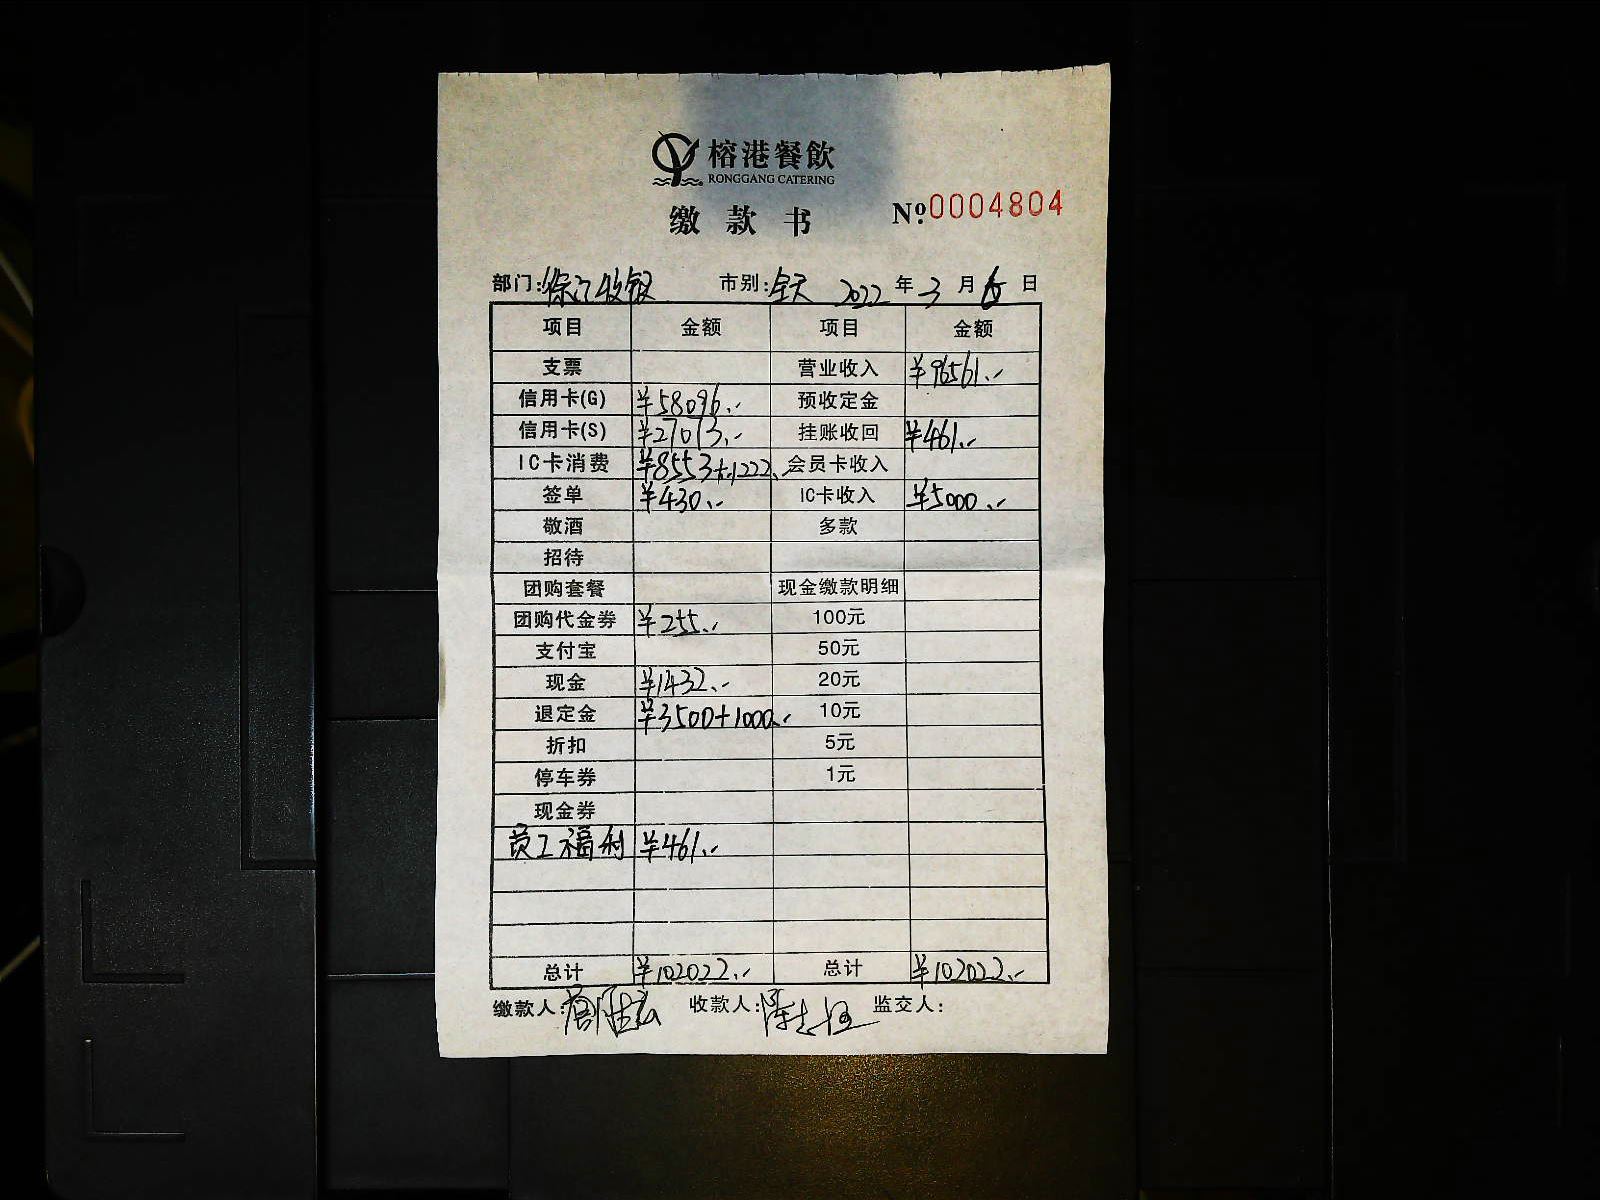 榕港餐飲
RONGGANG CATERING
缴款书 №0004804
部门:徐汇收银 市别:全天 2022年3月 日
项目 金额 项目 金额
支票 营业收入 ¥96561.-
信用卡(G) ¥58096.- 预收定金
信用卡(S) ¥27073.- 挂账收回 ¥461.-
IC卡消费 ¥8553+1222.- 会员卡收入
签单 ¥430.- IC卡收入 ¥5000.-
敬酒 多款
招待
团购套餐 现金缴款明细
团购代金券 ¥255.- 100元
支付宝 50元
现金 ¥1432.- 20元
退定金 ¥3500+1000.- 10元
折扣 5元
停车券 1元
现金券
员工福利 ¥461.-
总计 ¥102022.- 总计 ¥102022.-
缴款人: 收款人: 监交人: